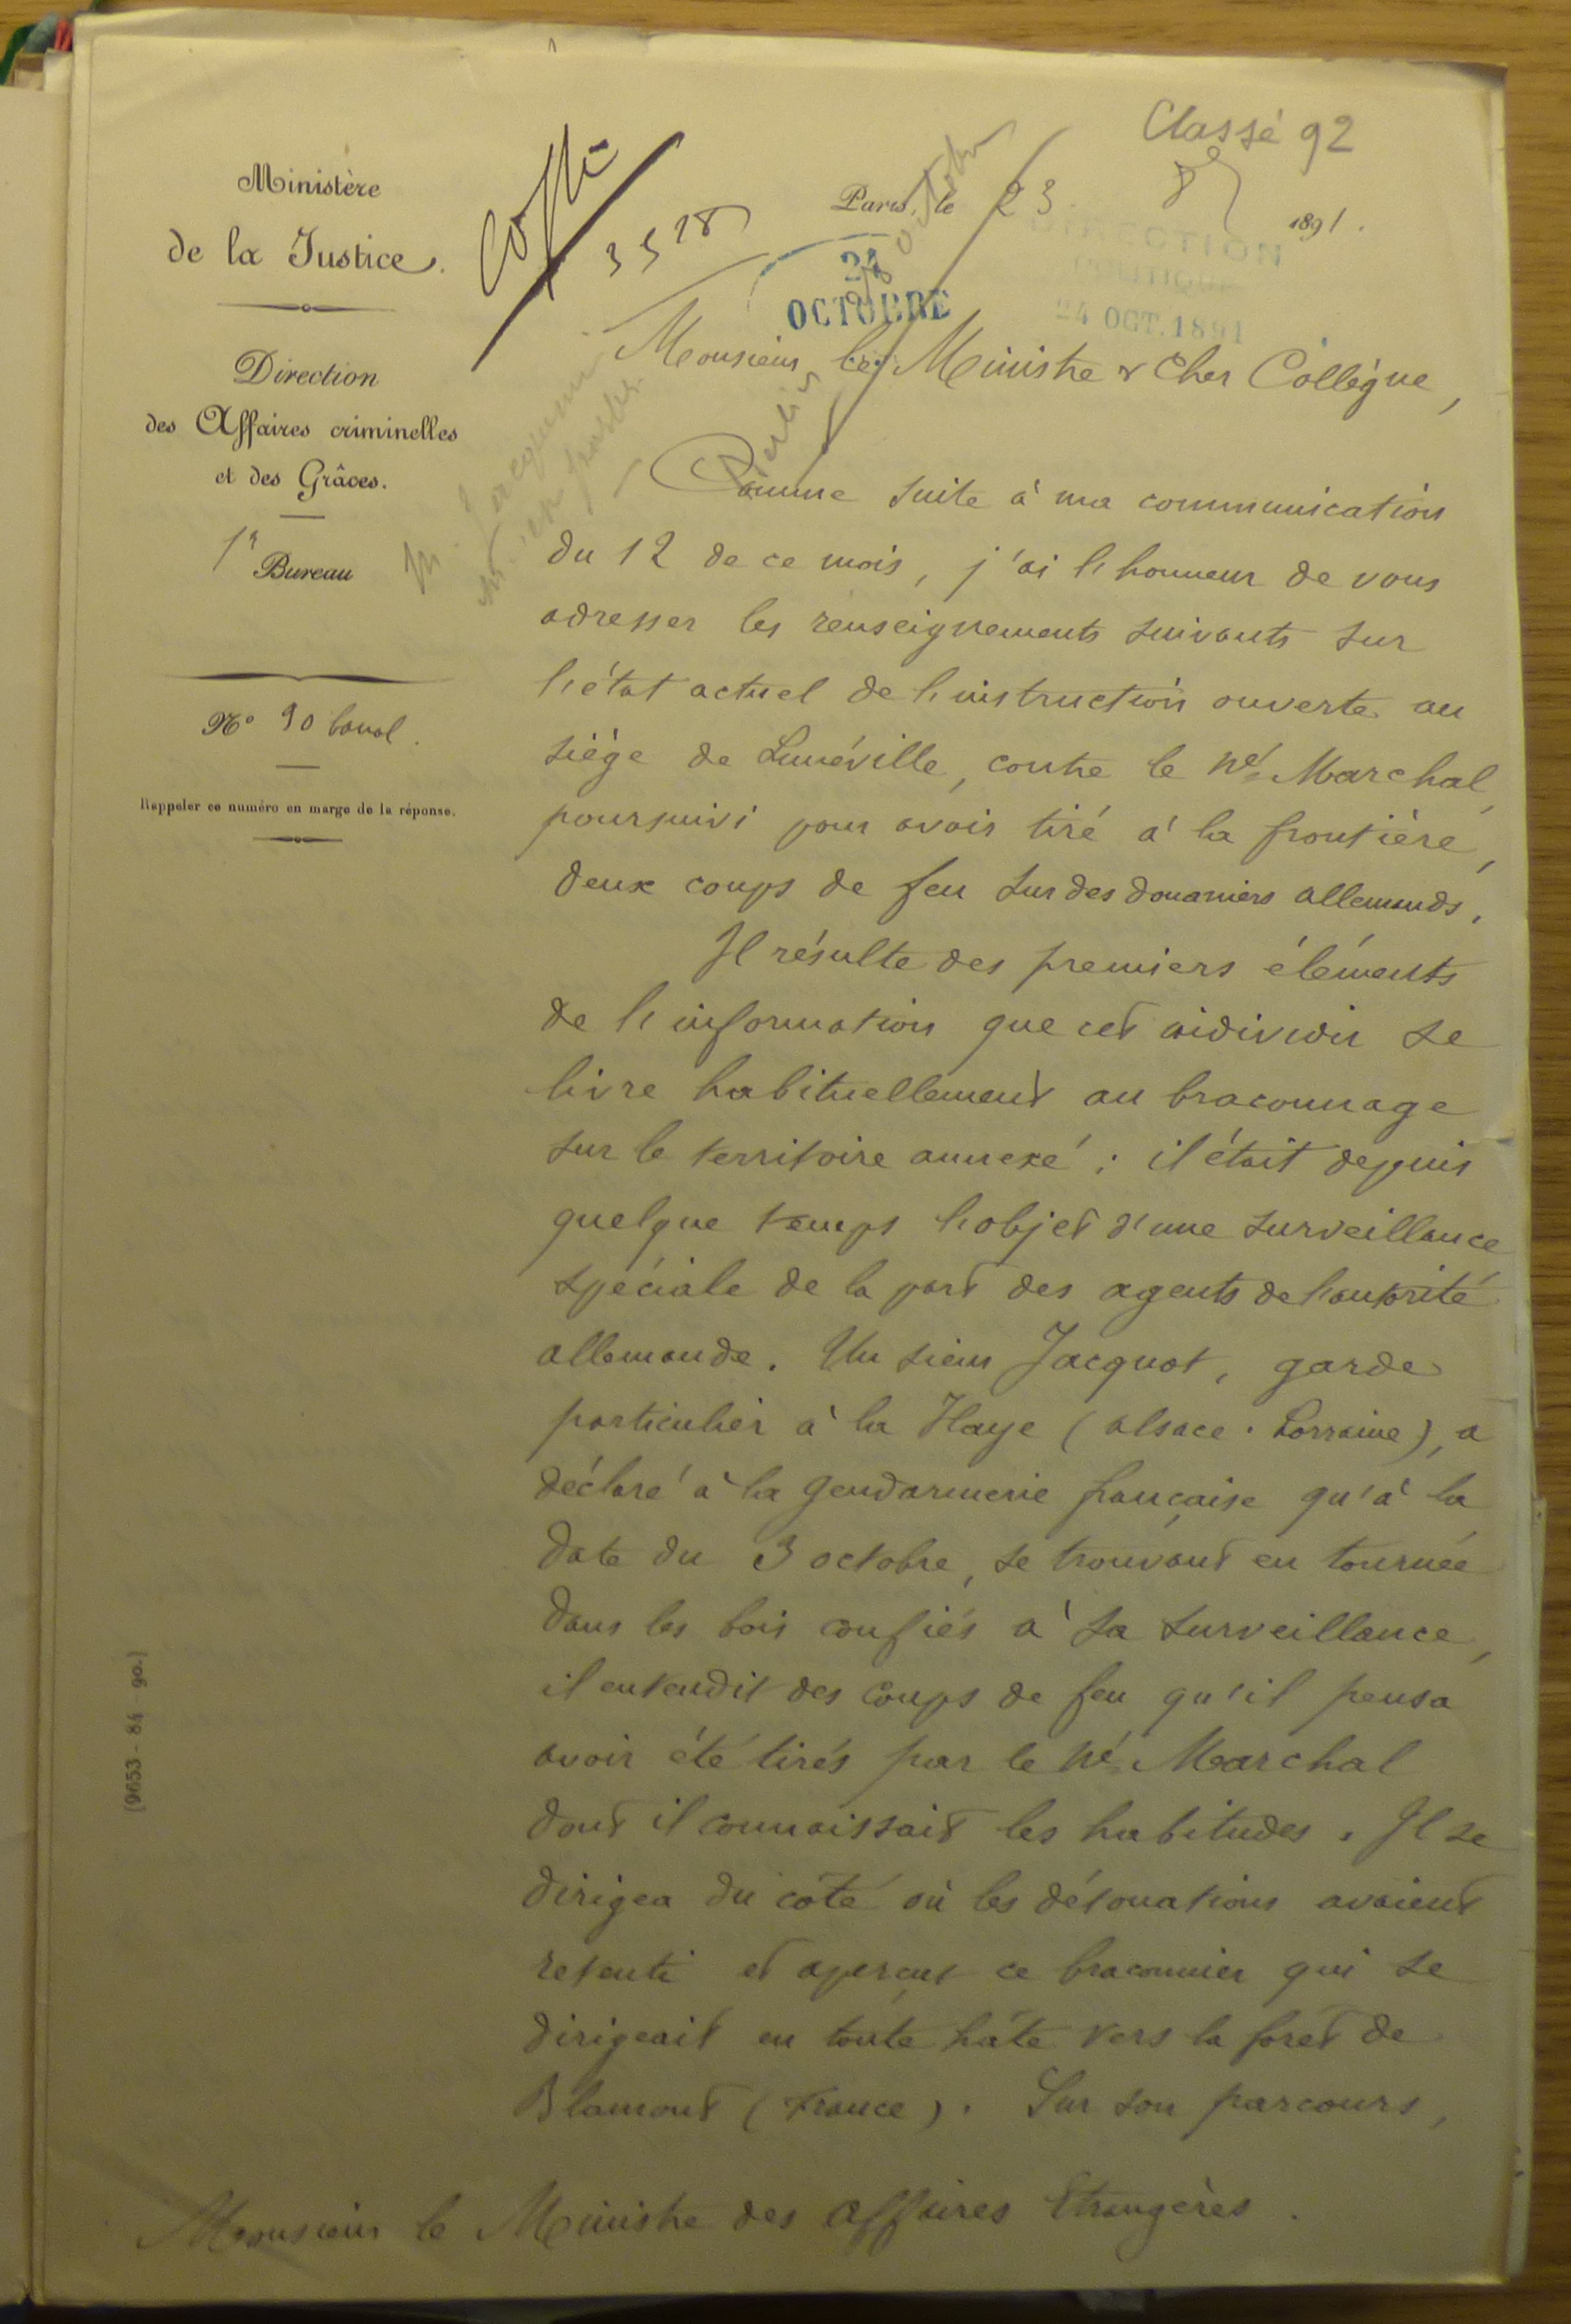 Classé 92
Ministère
de la Justice.
Direction
des Affaires criminelles
et des Grâces.
1r
Bureau
No 90 banal.
Rappeler ce numéro en marge de la réponse.
[9653 - 84 90.]
3528
Paris, le 23 8e 1891.
24
OCTOBRE
DIRECTION
POLITIQUE
24 OCT. 1891
Monsieur le Ministre & Cher Collègue,
Comme suite à ma communication
du 12 de ce mois, j'ai l'honneur de vous
adresser les renseignements suivants sur
l'état actuel de l'instruction ouverte au
siège de Lunéville, contre le né Marchal,
poursuivi pour avoir tiré à la frontière,
deux coups de feu sur des douaniers allemands.
Il résulte des premiers éléments
de l'information que cet individu se
livre habituellement au braconnage
sur le territoire annexé : il était depuis
quelque temps l'objet d'une surveillance
spéciale de la part des agents de l'autorité
allemande. Un sieur Jacquot, garde
particulier à la Haye (Alsace-Lorraine), a
déclaré à la gendarmerie française qu'à la
date du 3 octobre, se trouvant en tournée
dans les bois confiés à sa surveillance,
il entendit des coups de feu qu'il pensa
avoir été tirés par le né Marchal
dont il connaissait les habitudes. Il se
dirigea du côté où les détonations avaient
retenti et aperçut ce braconnier qui se
dirigeait en toute hâte vers la forêt de
Blamont (France). Sur son parcours,
Monsieur le Ministre des Affaires Etrangères.